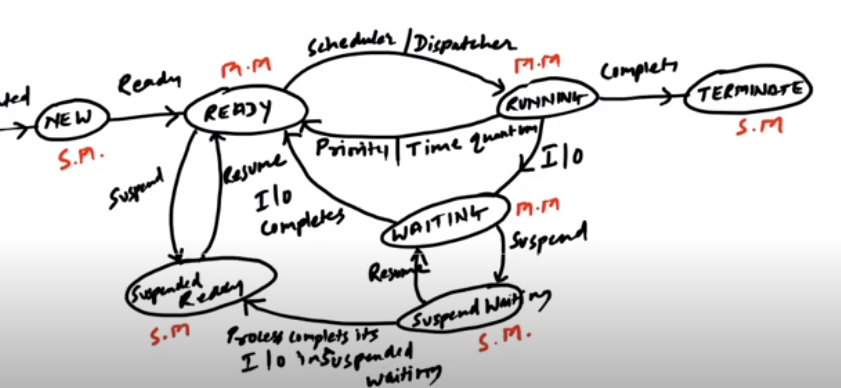 Scheduler / Dispatcher
M.M
M.M
Complets
Ready
ted
NEW
READY
RUNNING
TERMINATE
S.M.
S.M
Priority | Time quantum
I/O
Suspend
Resume
I/O
completes
WAITING
M.M
Suspend
Resume
Suspended
Ready
Suspend Waiting
S.M
S.M.
Process completes its
I/O in Suspended
waiting